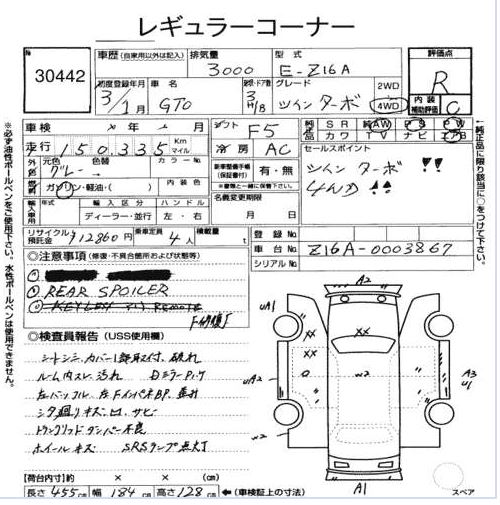 レギュラーコーナー
30442
車歴 (自家用以外は記入) 排気量 3000 型式 E-Z16A
評価点 R
初度登録年月 3/1月 車名 GTO ドア数 3 H/B グレード ツインターボ 2WD 4WD
内装補助評価 C
車検 年 月 シフト F5 純正品 SR AW PS PW
カワ TV ナビ エアB
走行 150335 Km マイル 冷房 AC セールスポイント
外色 元色 グレー 色替 カラーNo. ツインターボ!!
燃料 ガソリン・軽油・( ) 内装色 有・無 4WD!!
輸入車用 年式 輸入区分 ハンドル 名義変更期限
ディーラー・並行 左・右 月 日
リサイクル預託金 ¥12860円 乗車定員 4人 積載量 t 登録No.
車台No. Z16A-0003867
シリアルNo.
◎注意事項 (修復・不具合箇所および状態等)
② REAR SPOILER
③ KEYLEY REMOTE
◎検査員報告 (USS使用欄)
シートシミ カバー 破れ
ルーム内スレ 汚れ Dミラー
左Fインパネ
シタ廻りキズ・凹 サビ
トランクリッドダンパー不良
ホイールキズ SRSランプ点灯
A2
uA1 xx xx
uA2 w2 A3 u1
w2
A1
スペア
【荷台内寸】 × × (cm)
長さ 455cm 幅 184cm 高さ 128cm ←(車検証上の寸法)
※必ず油性ボールペンをご使用下さい。水性ボールペンは使用できません。
純正品に限り該当に○をつけて下さい。